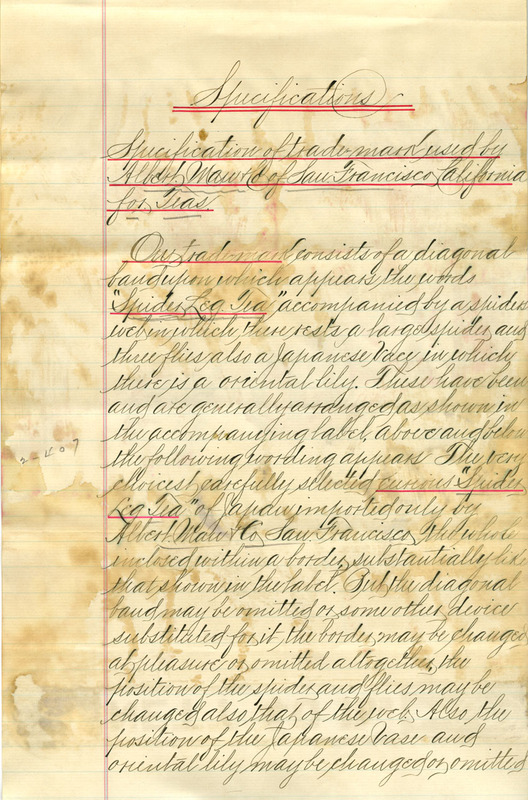 Specifications
Specification of trade-mark used by
Albert Mau & Co of San Francisco California
for Teas
Our trade-mark consists of a diagonal
band upon which appears the words
"Spider Leg Tea" accompanied by a spiders
web in which there rests a large spider and
three flies also a Japanese Vace in which
there is a oriental lily. These have been
and are generally arranged as shown in
the accompanying label, above and below
the following wording appears The very
choicest carefully selected curious "Spider
Leg Tea" of Japan imported only by
Albert Mau & Co, San Francisco, the whole
inclosed within a border, substantially like
that shown in the label. But the diagonal
band may be omitted or some other device
substituted for it, the border may be changed
at pleasure or omitted altogether, the
position of the spider and flies may be
changed also that of the web. Also the
position of the Japanese Vase and
oriental lily may be changed or omitted
2-407